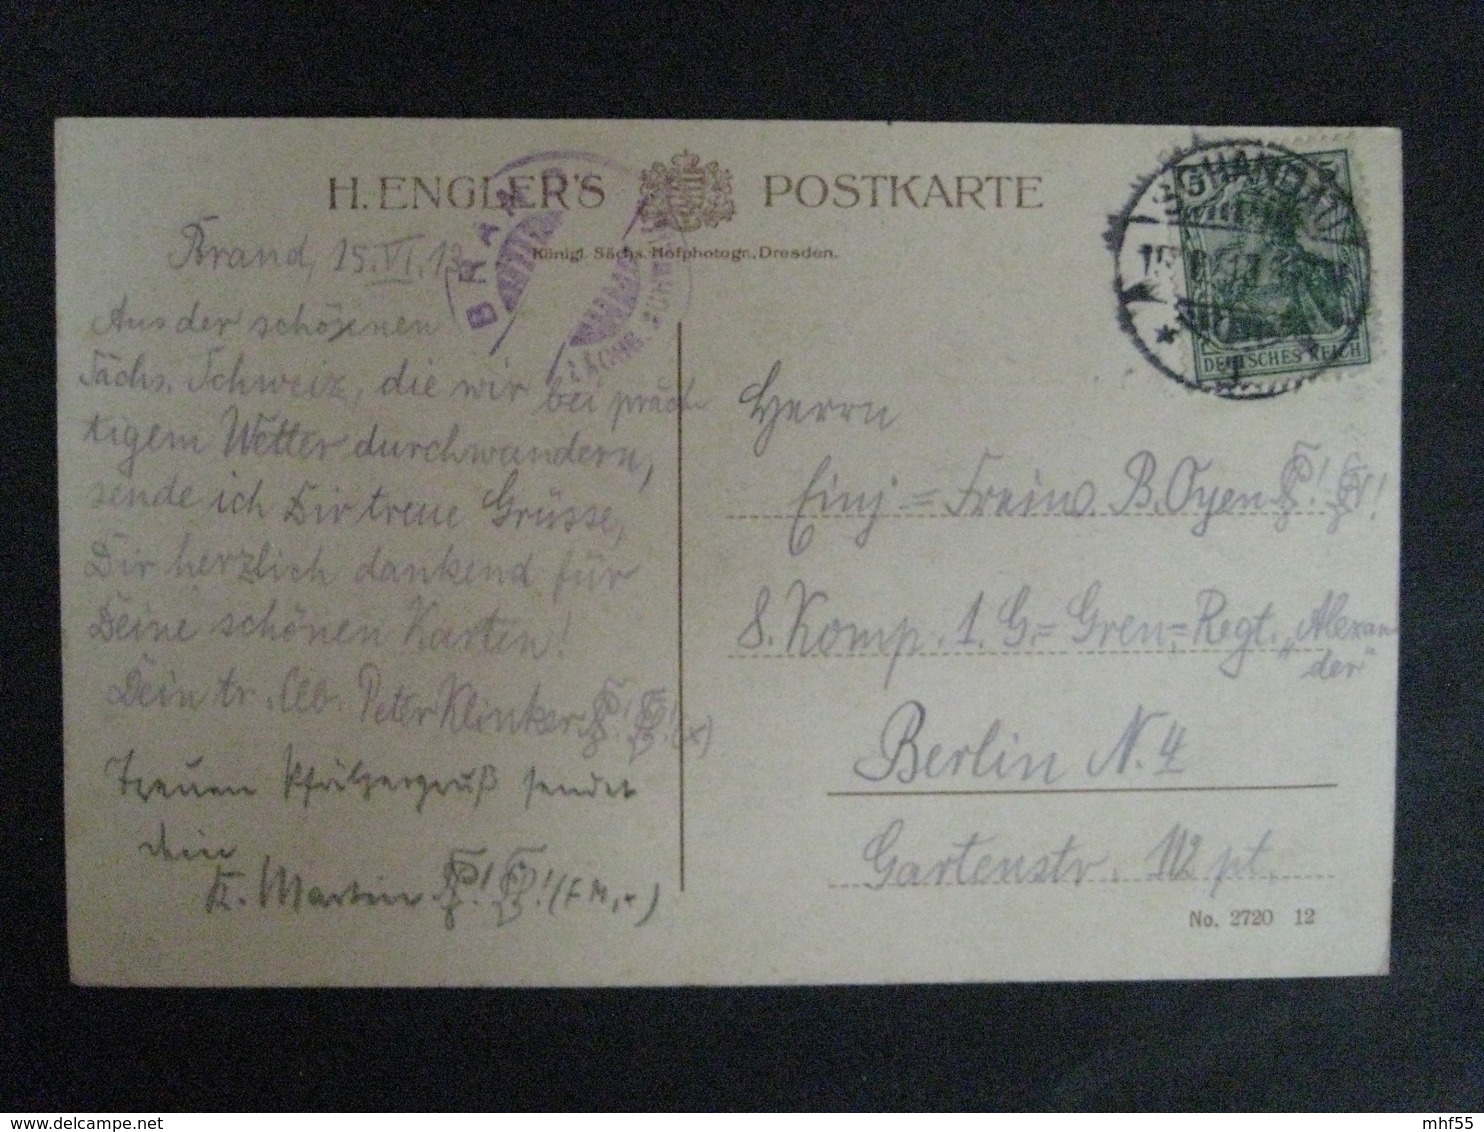 H. ENGLER'S POSTKARTE
Königl. Sächs. Hofphotogr., Dresden.
BRAND
SCHANDAU
DEUTSCHES REICH
Brand, 15.VI.13
Aus der schönen
Sächs. Schweiz, die wir bei präch-
tigem Wetter durchwandern,
sende ich Dir treue Grüsse,
Dir herzlich dankend für
Deine schönen Karten!
Dein tr. Cb. Peter Klinker ! ! (x)
Treuen Pfälzergruß sendet
dein
K. Martin ! ! (FM, x)
Herrn
Einj.=Freiw. B. Oyen ! !
8. Komp. 1. G.=Gren.=Regt. „Alexan
der"
Berlin N. 4
Gartenstr. 112 pt.
No. 2720 12
mhf55